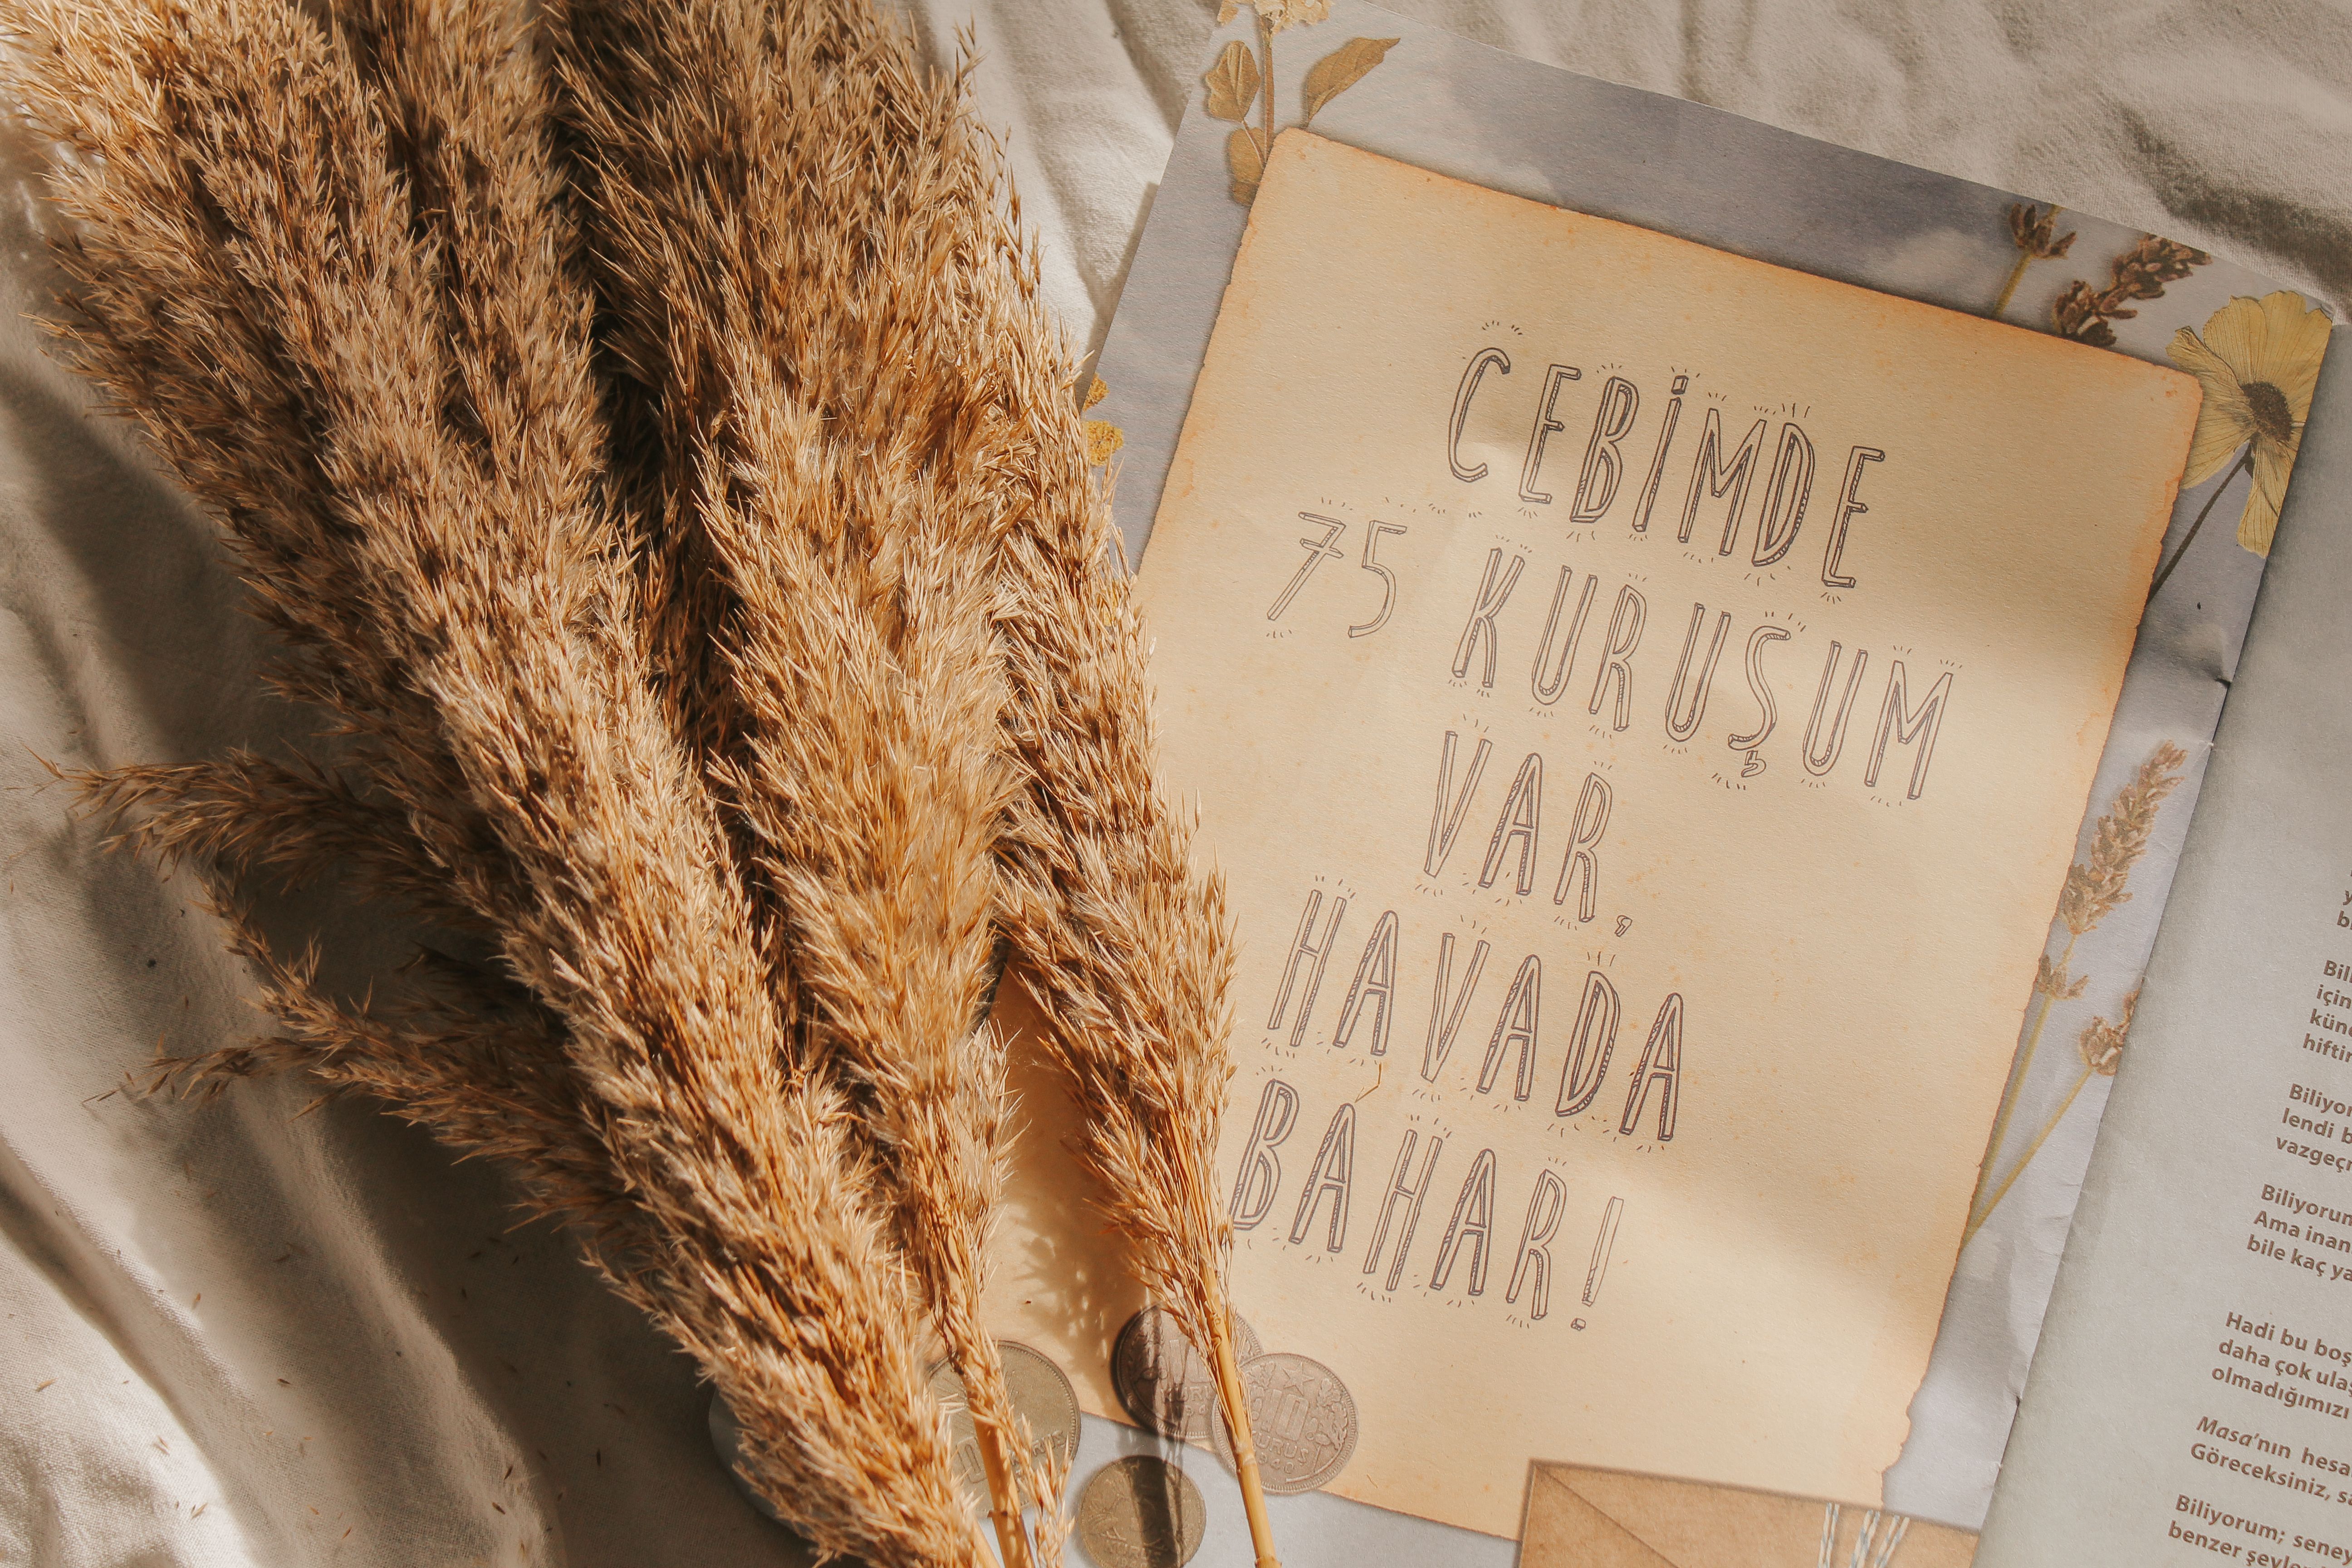 CEBİMDE
75 KURUŞUM
VAR,
HAVADA
BAHAR!
10
KURUŞ
için
Biliyorum
Ama inan
bile kaç ya
Hadi bu boş
daha çok ulaş
olmadığımızı
Masa'nın hesa
Göreceksiniz,
Biliyorum; sene
benzer şeyler